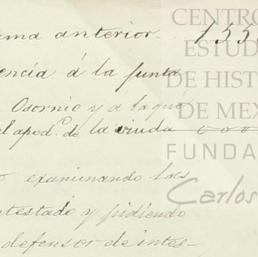 ma anterior. 1550
CENTRO
ESTUD
encia á la junta
DE HIST
Osornio y a la que
DE MEX
el apod.º de la viuda 000
FUNDA
examinando las
Carlos
ntestado y pidiendo
defensor de intes-